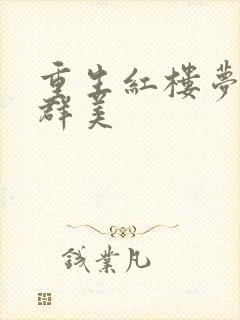 重生紅樓夢
群美
錢業凡